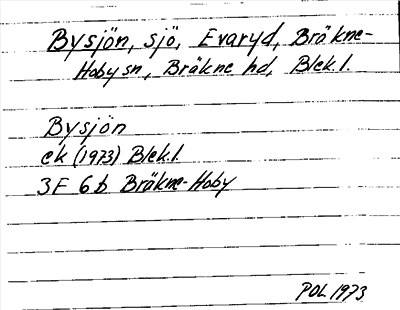 Bysjön, sjö, Evaryd, Bräkne-
Hoby sn, Bräkne hd, Blek. l.
Bysjön
ek (1973) Blek. l.
3F 6b Bräkne-Hoby
POL 1973